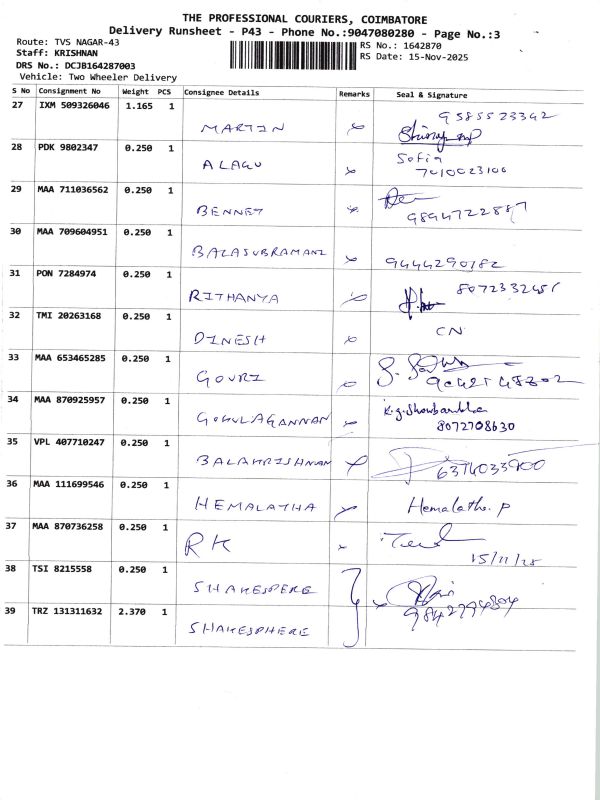 THE PROFESSIONAL COURIERS, COIMBATORE
Delivery Runsheet - P43 - Phone No.:9047080280 - Page No.:3
Route: TVS NAGAR-43
Staff: KRISHNAN
DRS No.: DCJB164287003
Vehicle: Two Wheeler Delivery
RS No.: 1642870
RS Date: 15-Nov-2025
S No Consignment No Weight PCS Consignee Details Remarks Seal & Signature
27 IXM 509326046 1.165 1 MARTIN 9585523342
28 PDK 9802347 0.250 1 ALAGU Sofia
7010023106
29 MAA 711036562 0.250 1 BENNET
9894722887
30 MAA 709604951 0.250 1 BALASUBRAMANI 9444290182
31 PON 7284974 0.250 1 RITHANYA 8072332451
32 TMI 20263168 0.250 1 DINESH CN
33 MAA 653465285 0.250 1 GOURI
34 MAA 870925957 0.250 1 GOKULAGANNAN
8072708630
35 VPL 407710247 0.250 1 BALAKRISHNAN 6374033900
36 MAA 111699546 0.250 1 HEMALATHA Hemalatha. P
37 MAA 870736258 0.250 1 RK
15/11/25
38 TSI 8215558 0.250 1 SHAKESPERE
39 TRZ 131311632 2.370 1 SHAKESPHERE 9842794804